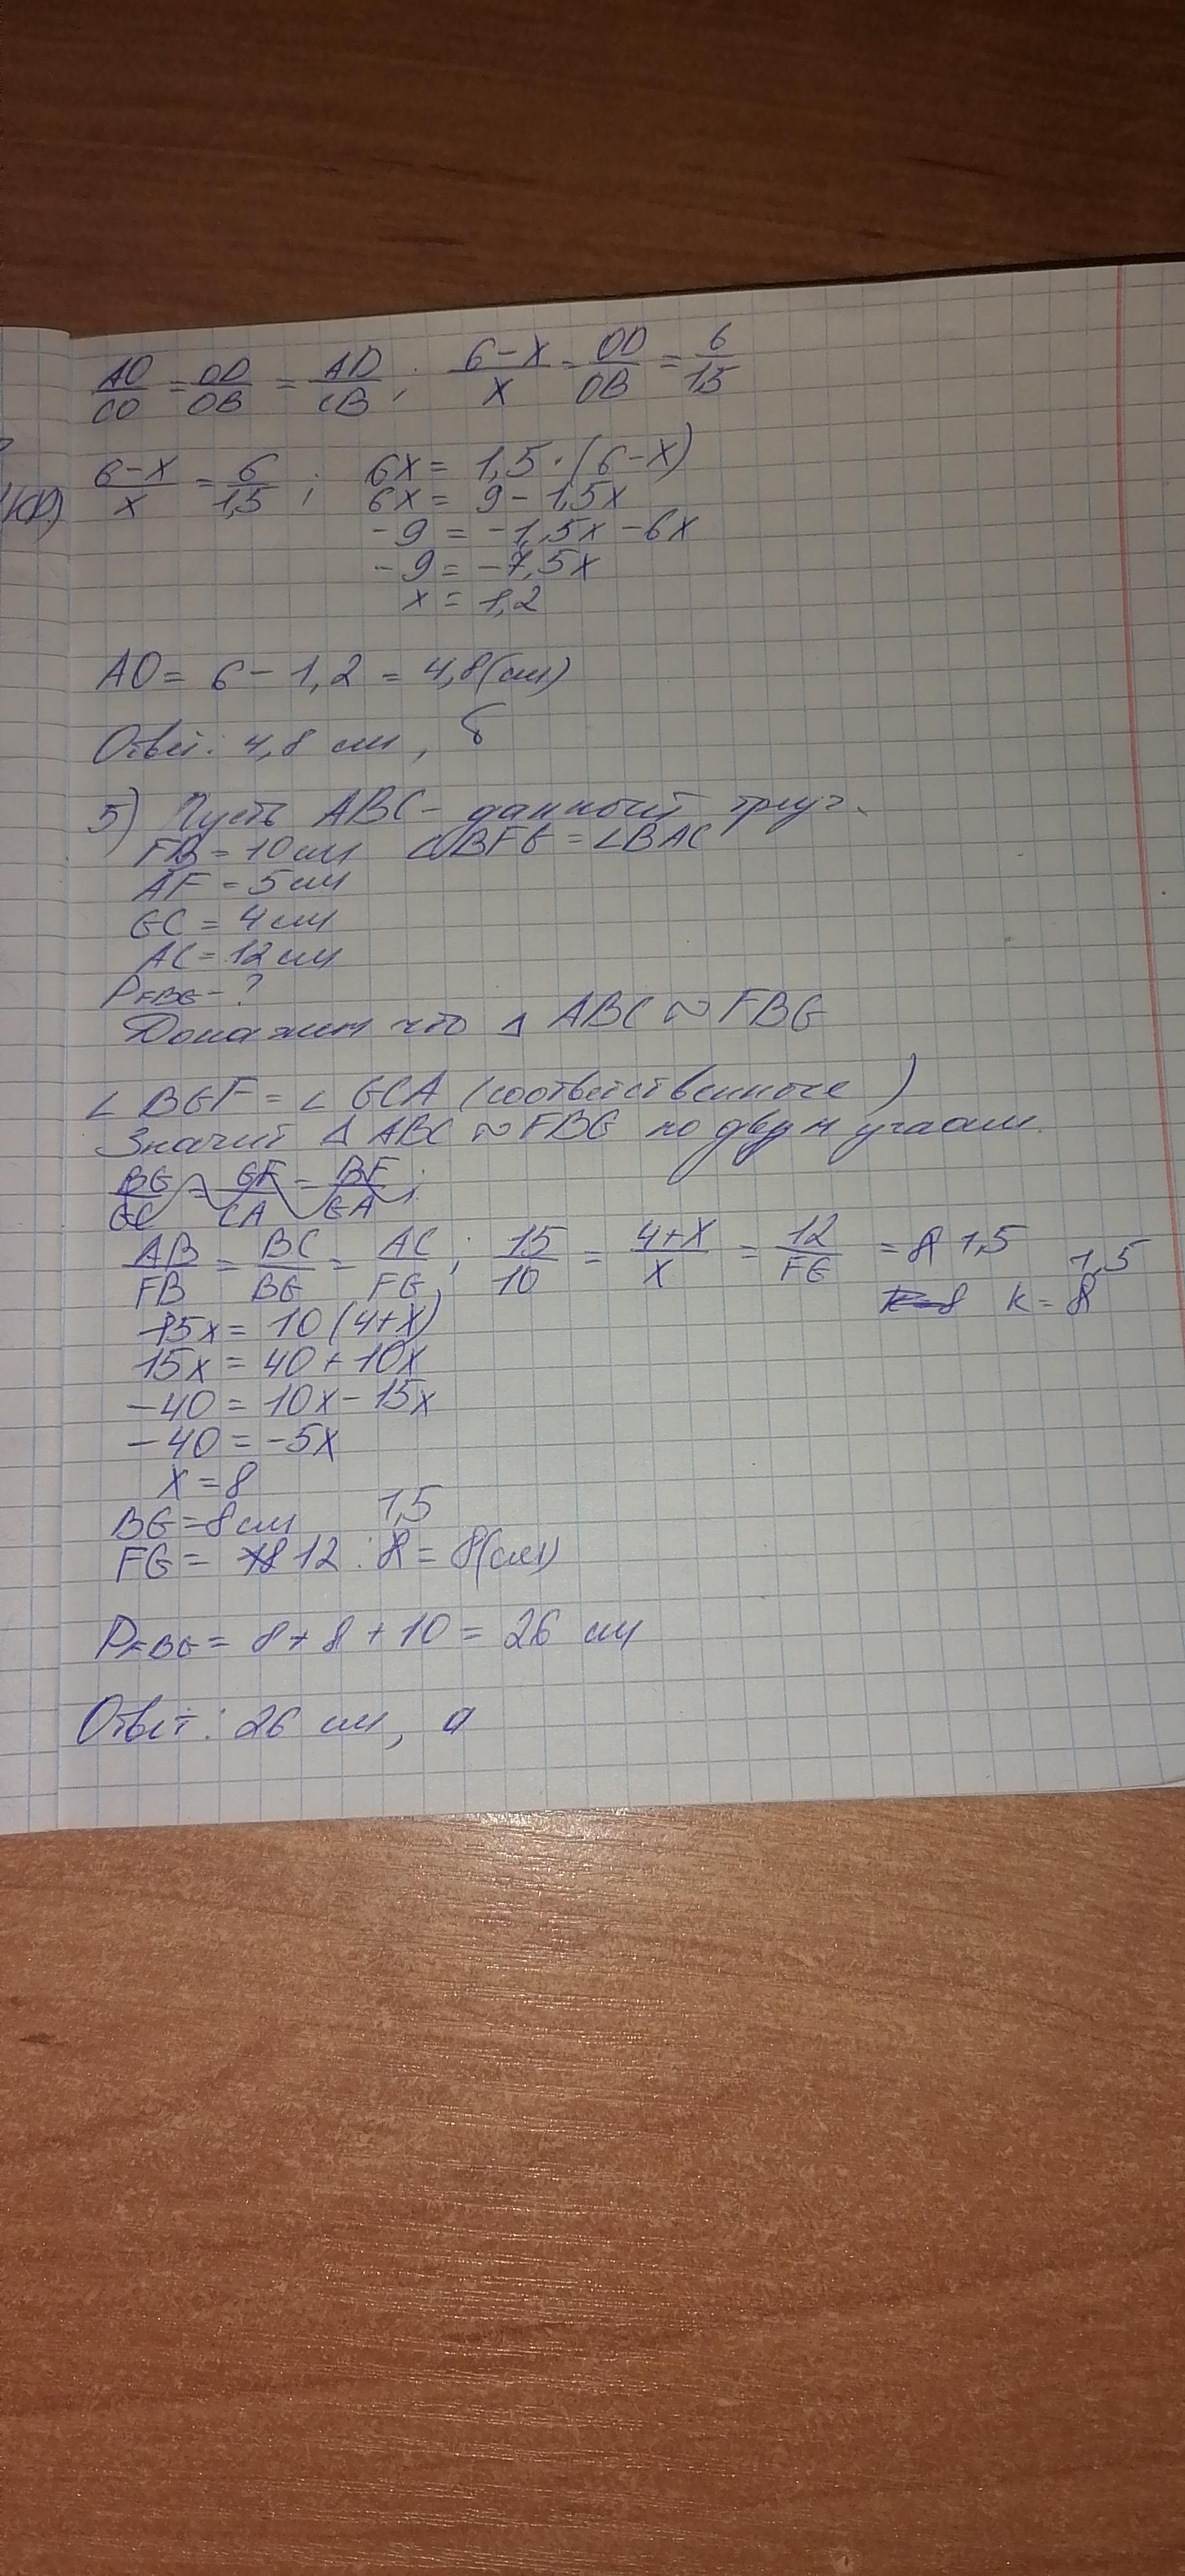 AO/CO = OD/OB = AD/CB ; 6-x/x = OD/OB = 6/15
6-x/x = 6/1,5 ; 6x = 1,5·(6-x)
6x = 9-1,5x
-9 = -1,5x-6x
-9 = -7,5x
x = 1,2
AO = 6-1,2 = 4,8(см)
Ответ: 4,8 см, б
5) Пусть ABC- данный треуг.
FB = 10 см ∠BFG = ∠BAC
AF = 5 см
GC = 4 см
AC = 12 см
P FBG - ?
Докажем что △ ABC ∾ FBG
∠ BGF = ∠ GCA (соответственные)
Значит △ ABC ∾ FBG по двум углам.
BG/GC = GF/CA = BF/GA ;
AB/FB = BC/BG = AC/FG ; 15/10 = 4+x/x = 12/FG = 8 1,5
k=8 k = 8 1,5
15x = 10(4+x)
15x = 40+10x
-40 = 10x-15x
-40 = -5x
x = 8
BG = 8 см 1,5
FG = 18 12 : 8 = 8(см)
P FBG = 8+8+10 = 26 см
Ответ: 26 см, а